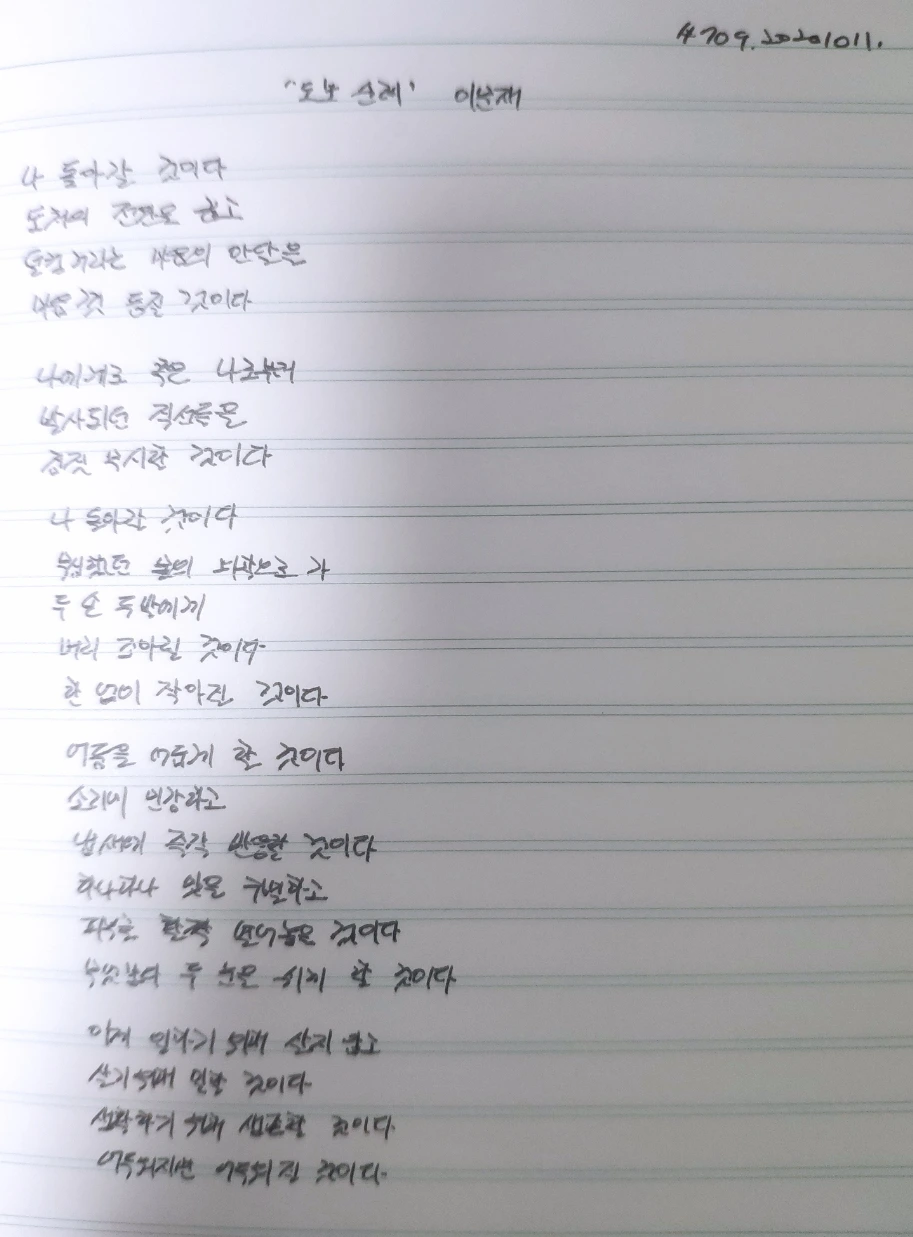 4709. 20201011.
'도보 순례' 이문재
나 돌아갈 것이다
도처의 전원을 끄고
덜컹거리는 마음의 안달을
마음껏 등질 것이다
나에게로 혹은 나로부터
발사되던 직선들을
짐짓 무시할 것이다
나 돌아갈 것이다
무심했던 몸의 외곽으로 가
두 손 두 발에게
머리 조아릴 것이다
한없이 작아질 것이다
어둠을 어둡게 할 것이다
소리에 민감하고
냄새에 즉각 반응할 것이다
하나하나 맛을 구별하고
피부를 활짝 열어놓을 것이다
무엇보다 두 눈을 쉬게 할 것이다
이제 일하기 위해 살지 않고
살기 위해 일할 것이다
생활하기 위해 생존할 것이다
어두워지면 어두워질 것이다